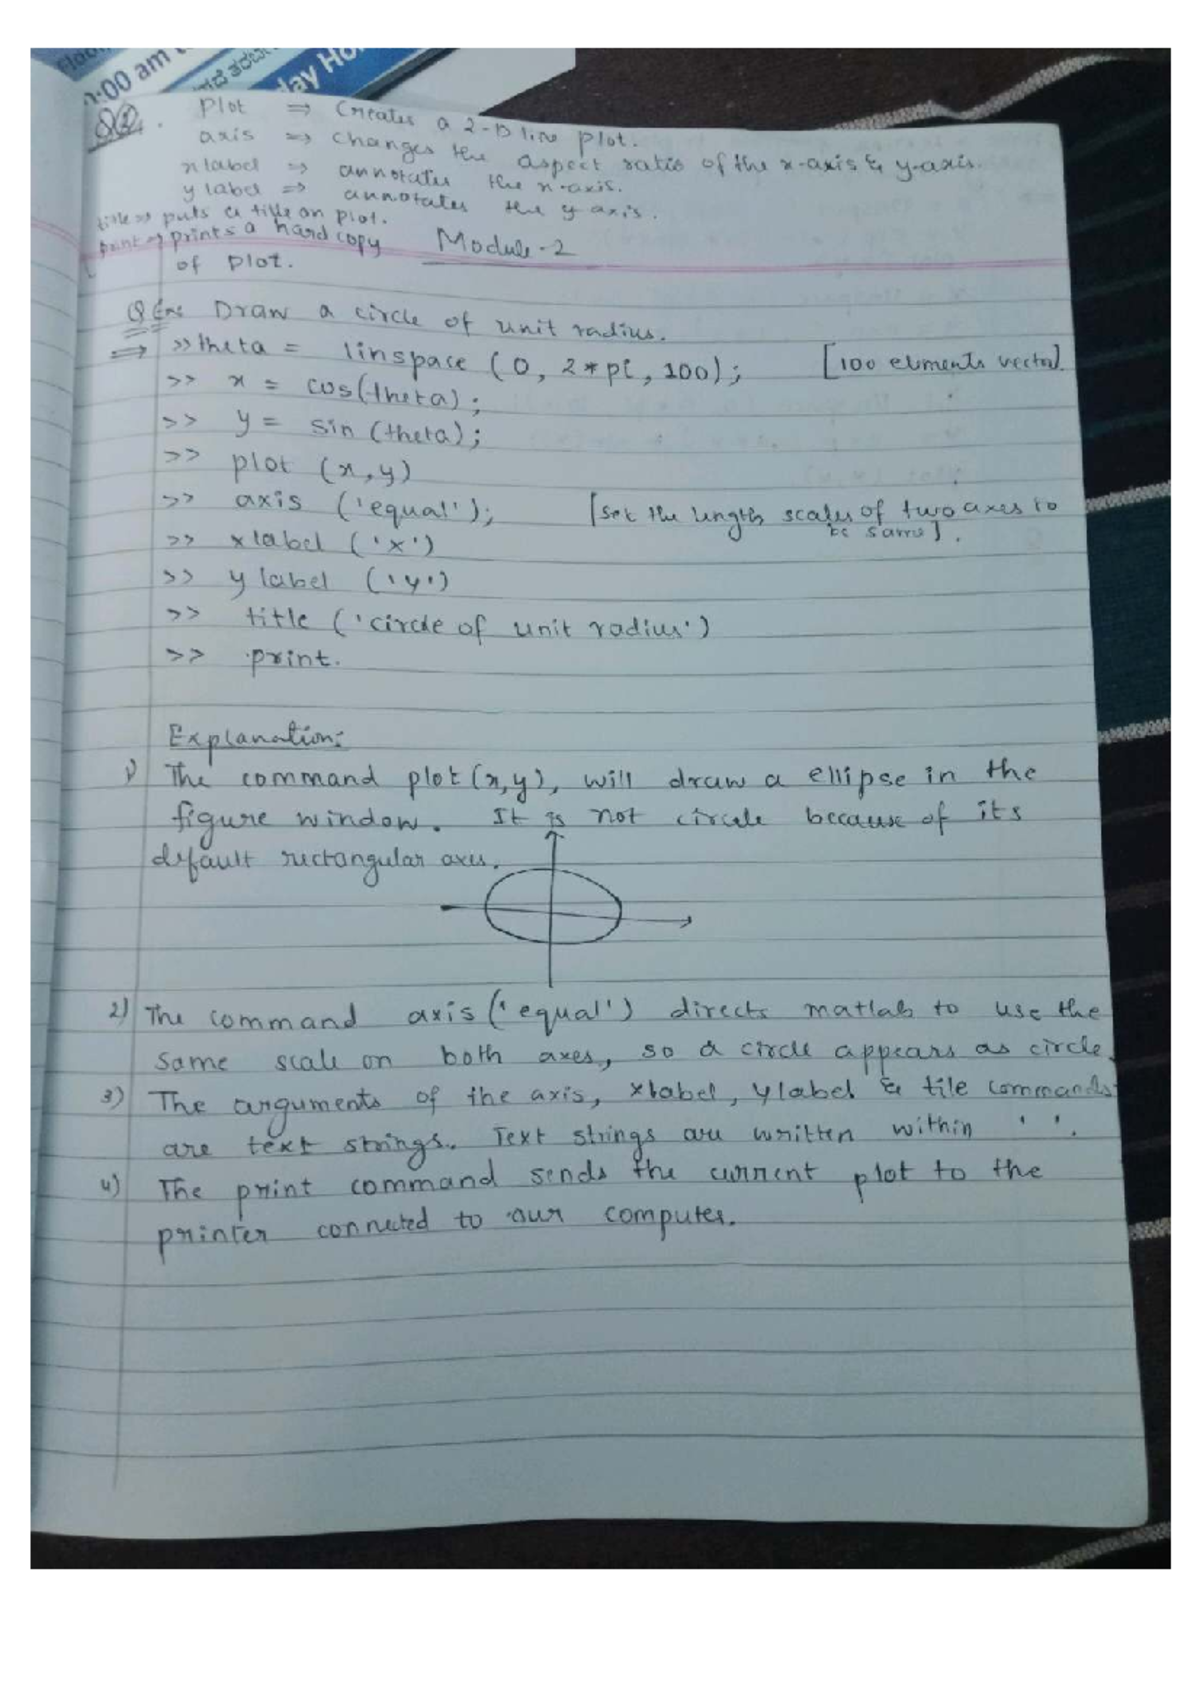 :00 am
ay Ho
Q2. Plot ⇒ Creates a 2-D line plot.
axis ⇒ changes the aspect ratio of the x-axis & y-axis.
xlabel ⇒ annotates the x-axis.
ylabel ⇒ annotates the y axis.
title ⇒ puts a title on plot.
print ⇒ prints a hard copy
of plot.
Module-2
Draw a circle of unit radius.
⇒ >> theta = linspace (0, 2*pi, 100); [100 elments vector].
>> x = cos(theta);
>> y = sin (theta);
>> plot (x,y)
>> axis ('equal'); [set the length scales of two axes to
be same].
>> xlabel ('x')
>> ylabel ('y')
>> title ('circle of unit radius')
>> print.
Explanation:
1) The command plot(x,y), will draw a ellipse in the
figure window. It is not circle because of its
default rectangular axis.
2) The command axis('equal') directs matlab to use the
same scale on both axes, so a circle appears as circle.
3) The arguments of the axis, xlabel, ylabel & tile commands
are text strings. Text strings are written within ' '.
4) The print command sends the current plot to the
printer connected to our computer.